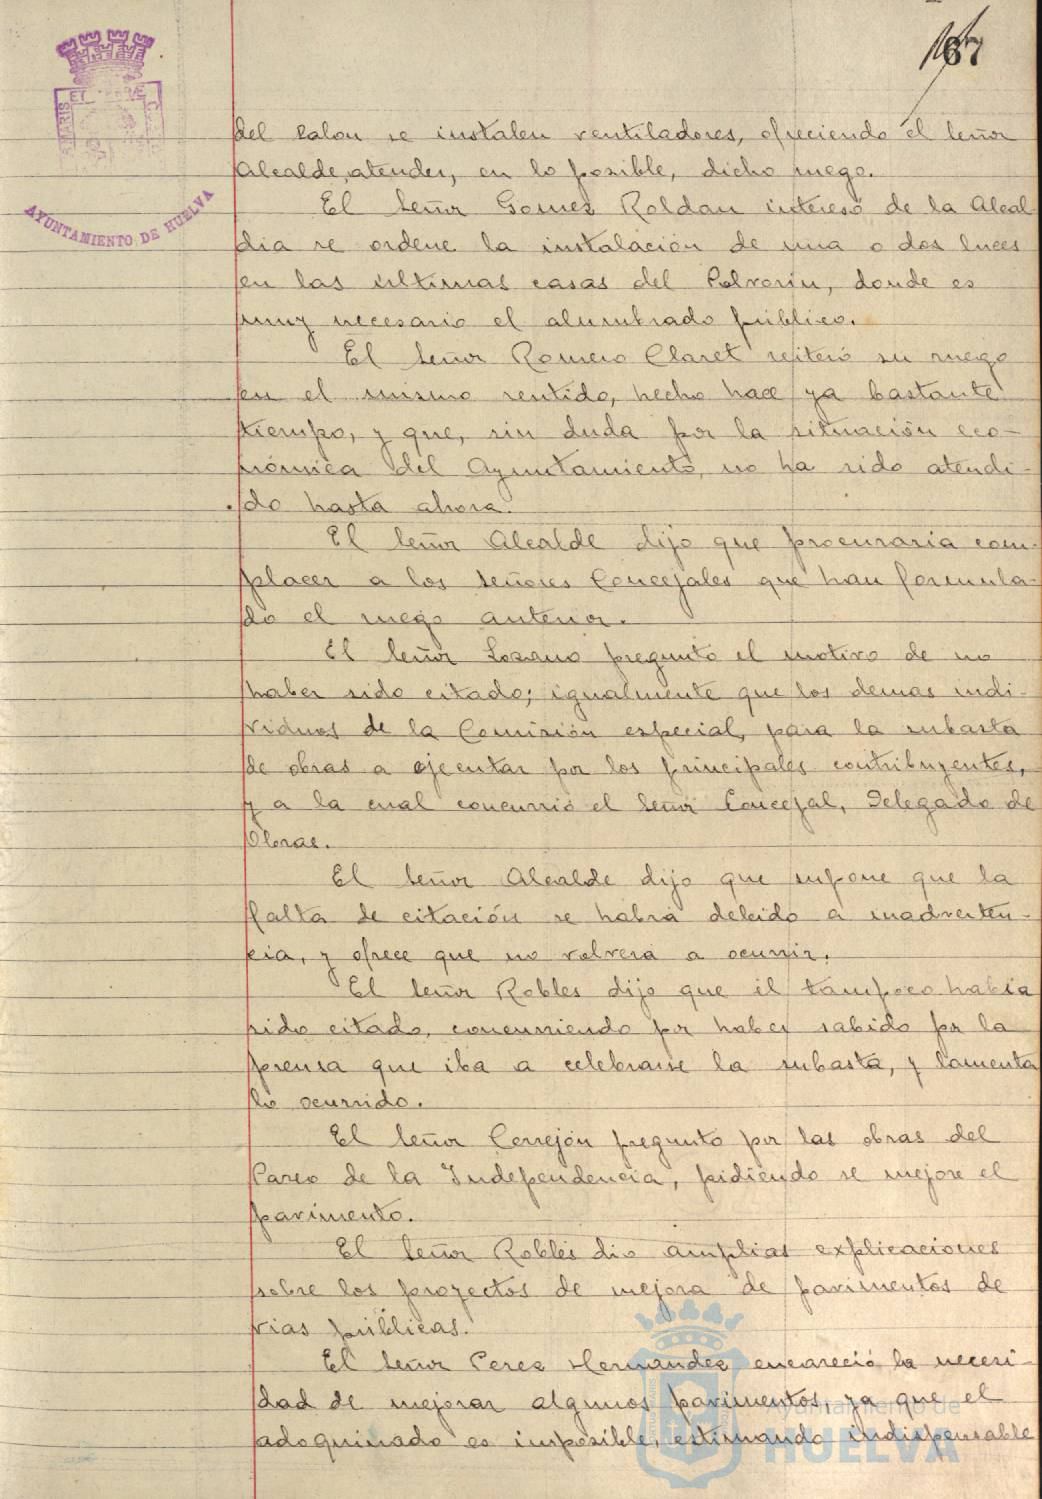 67
AYUNTAMIENTO DE HUELVA
del salon se instalen ventiladores, ofreciendo el Señor
Alcalde, atender, en lo posible, dicho ruego.
El Señor Gomez Roldan interesó de la Alcal-
dia se ordene la instalación de una o dos luces
en las últimas casas del Polvorin, donde es
muy necesario el alumbrado público.
El Señor Romero Claret reiteró su ruego
en el mismo sentido, hecho hace ya bastante
tiempo, y que, sin duda por la situación eco-
nómica del Ayuntamiento, no ha sido atendi-
do hasta ahora.
El Señor Alcalde dijo que procuraria com-
placer a los señores Concejales que han formula-
do el ruego anterior.
El Señor Lozano preguntó el motivo de no
haber sido citado; igualmente que los demas indi-
viduos de la Comisión especial, para la subasta
de obras a ejecutar por los principales contribuyentes,
y a la cual concurrió el Señor Concejal, Delegado de
Obras.
El Señor Alcalde dijo que supone que la
falta de citación se habrá debido a inadverten-
cia, y ofrece que no volverá a ocurrir.
El Señor Robles dijo que él tampoco habia
sido citado, concurriendo por haber sabido por la
prensa que iba a celebrarse la subasta, y lamenta
lo ocurrido.
El Señor Cerrejón preguntó por las obras del
Paseo de la Independencia, pidiendo se mejore el
pavimento.
El Señor Robles dió amplias explicaciones
sobre los proyectos de mejora de pavimentos de
vias públicas.
El Señor Perez Hernandez encareció la necesi-
dad de mejorar algunos pavimentos, ya que el
adoquinado es imposible, estimando indispensable
Ayuntamiento de
HUELVA